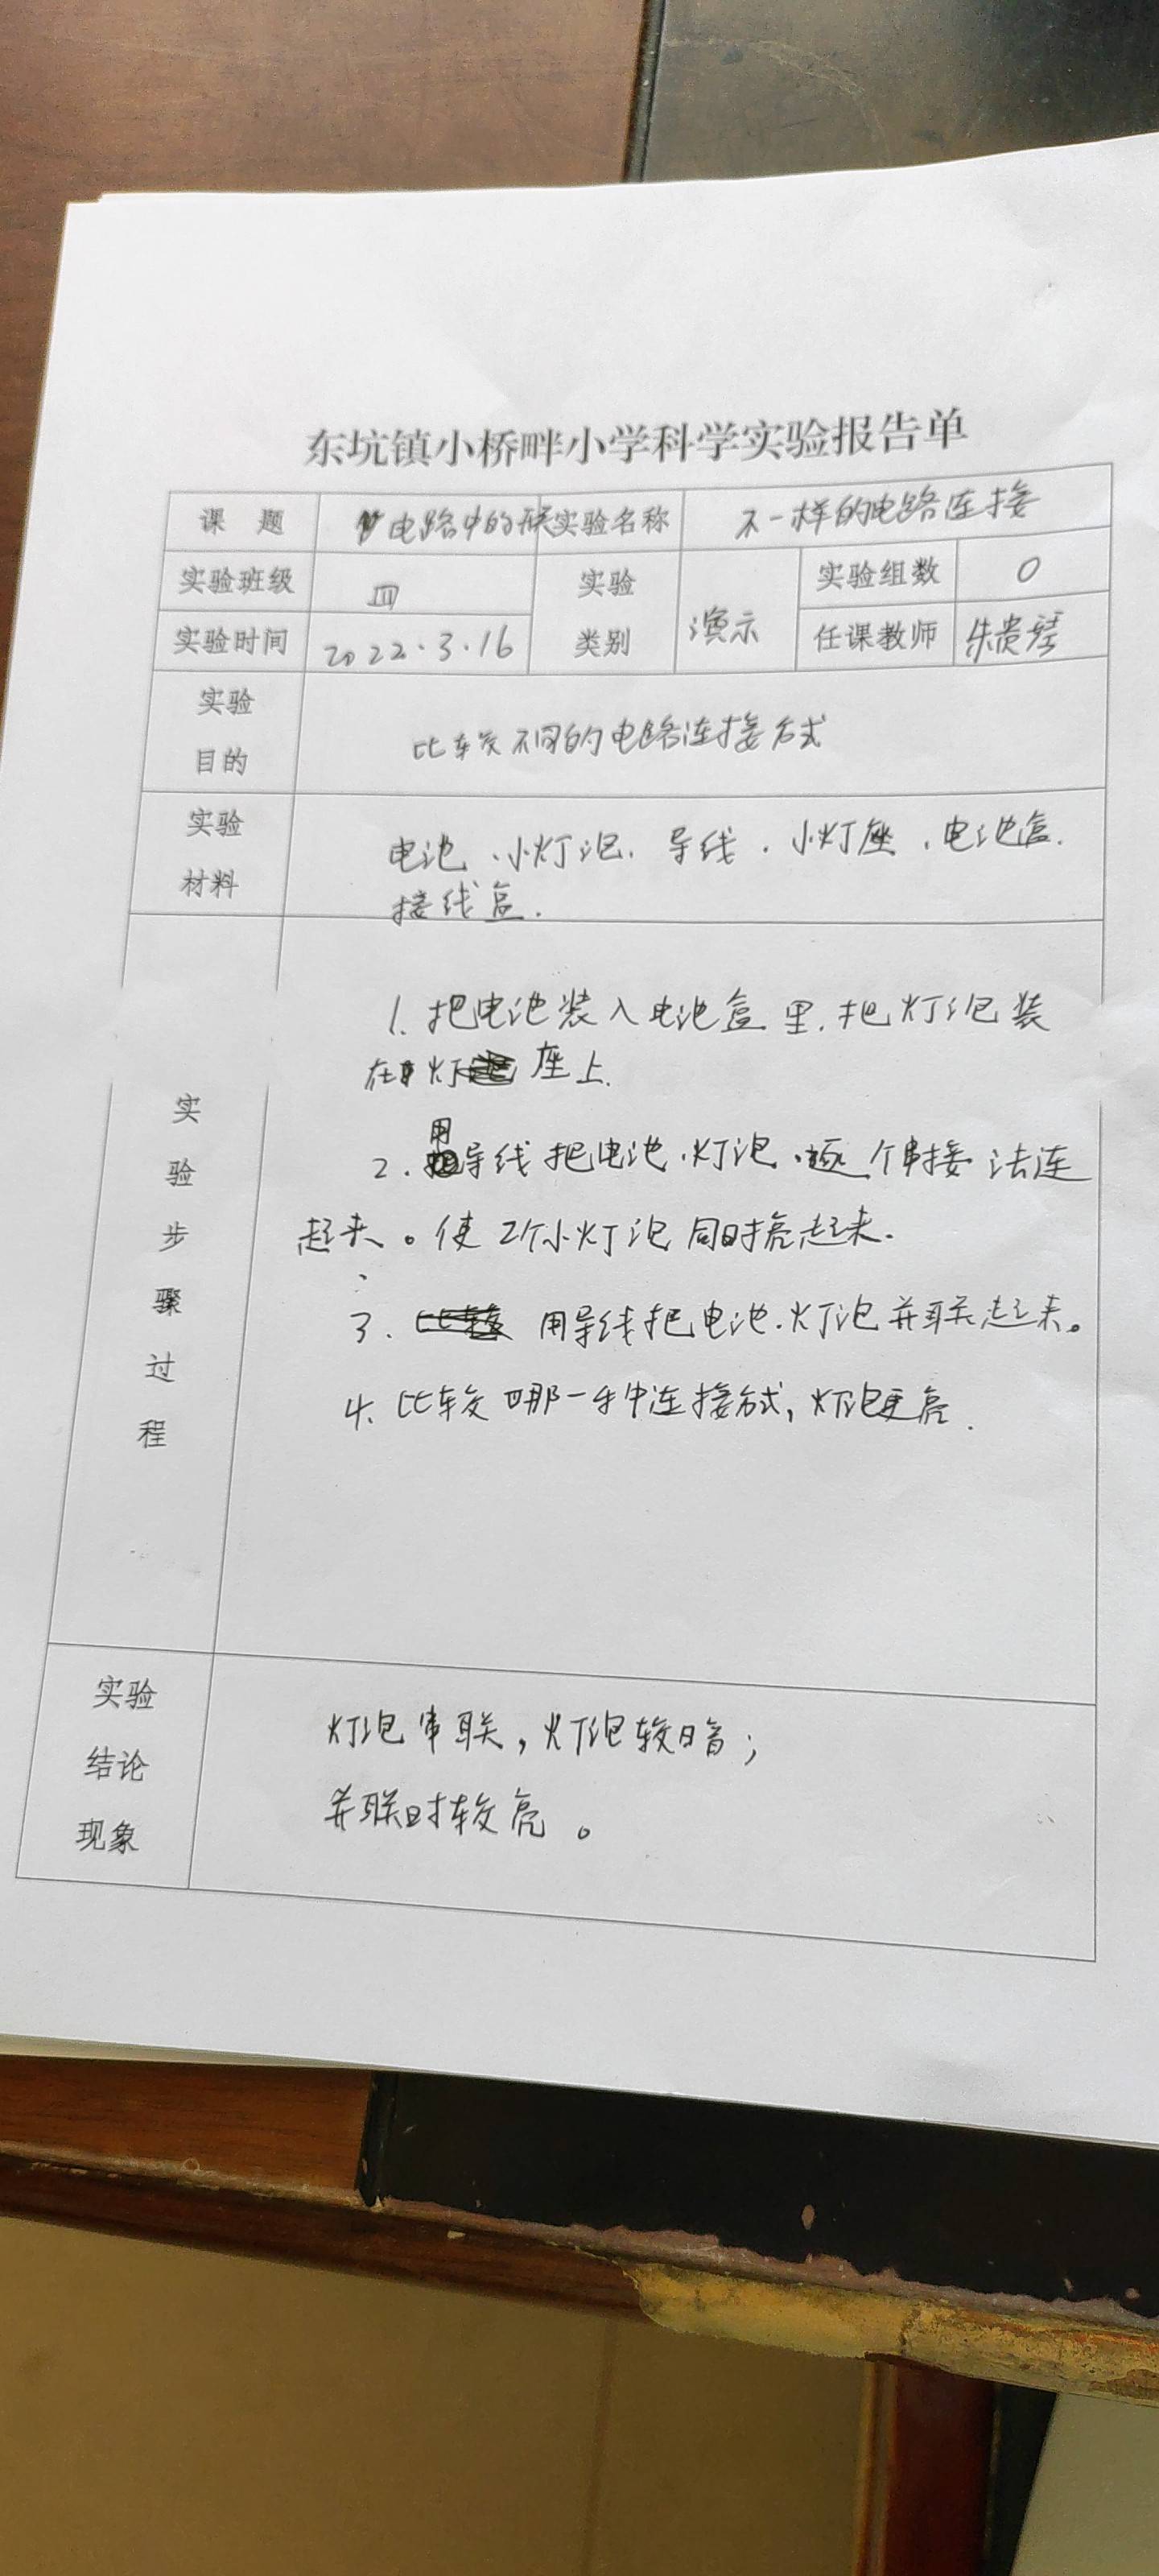 东坑镇小桥畔小学科学实验报告单
课 题 电路中的 实验名称 不一样的电路连接
实验班级 四 实验 类别 演示 实验组数 0
实验时间 2022.3.16 任课教师 朱贵琴
实验
目的
比较不同的电路连接方式
实验
材料
电池、小灯泡、导线、小灯座、电池盒.
接线盒.
实
验
步
骤
过
程
1. 把电池装入电池盒里.把灯泡装
在灯座上.
2. 用导线把电池、灯泡、逐个串接法连
起来。使2个小灯泡同时亮起来.
3. 用导线把电池.灯泡并联起来。
4. 比较哪一种连接方式,灯泡更亮.
实验
结论
现象
灯泡串联,灯泡较暗;
并联时较亮。